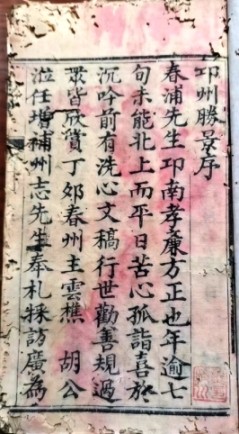 邛州勝景序
春浦先生邛南孝廉方正也年逾七
旬未能北上而平日苦心孤詣喜於
沉吟前有洗心文稿行世勸善規過
眾皆欣賞丁卯春州主雲樵 胡公
蒞任增補州志先生奉札採訪廣為